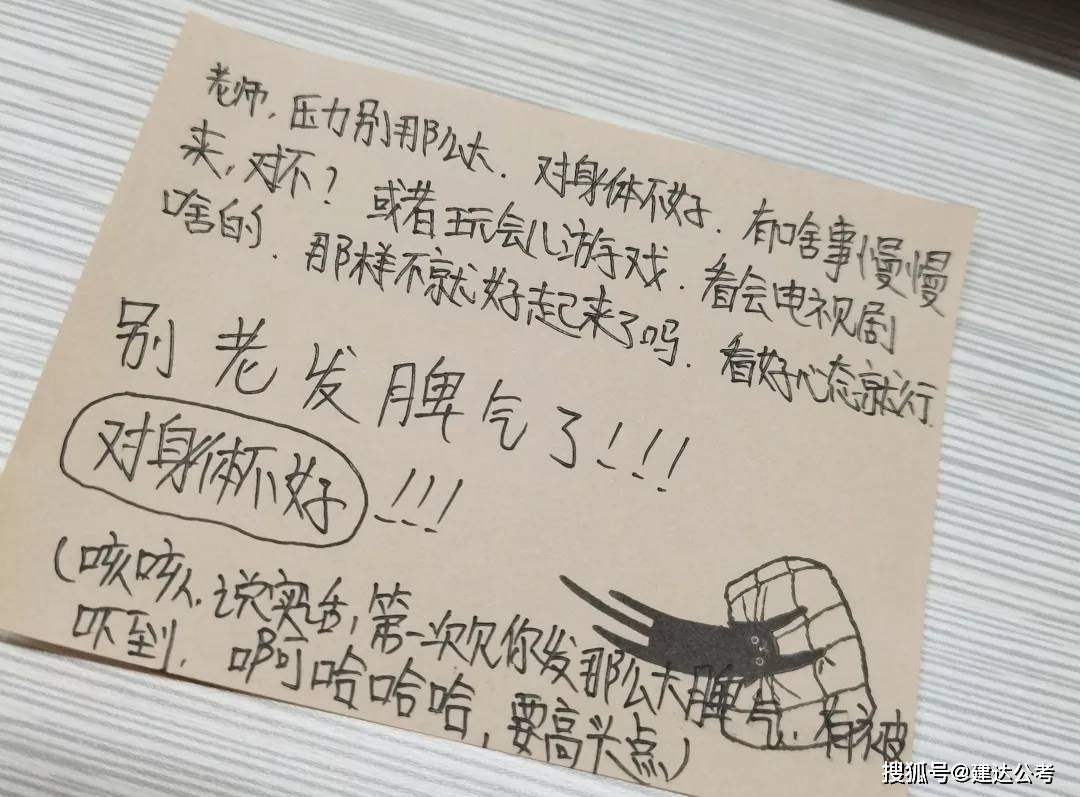 老师，压力别那么大．对身体不好．有啥事慢慢
来，对不？或者玩会儿游戏．看会电视剧
啥的．那样不就好起来了吗．看好心态就行．
别老发脾气了！！！
对身体不好！！！
（咳咳，说实话，第一次见你发那么大脾气．有被
吓到．啊哈哈哈，要高兴点）
搜狐号@建达公考